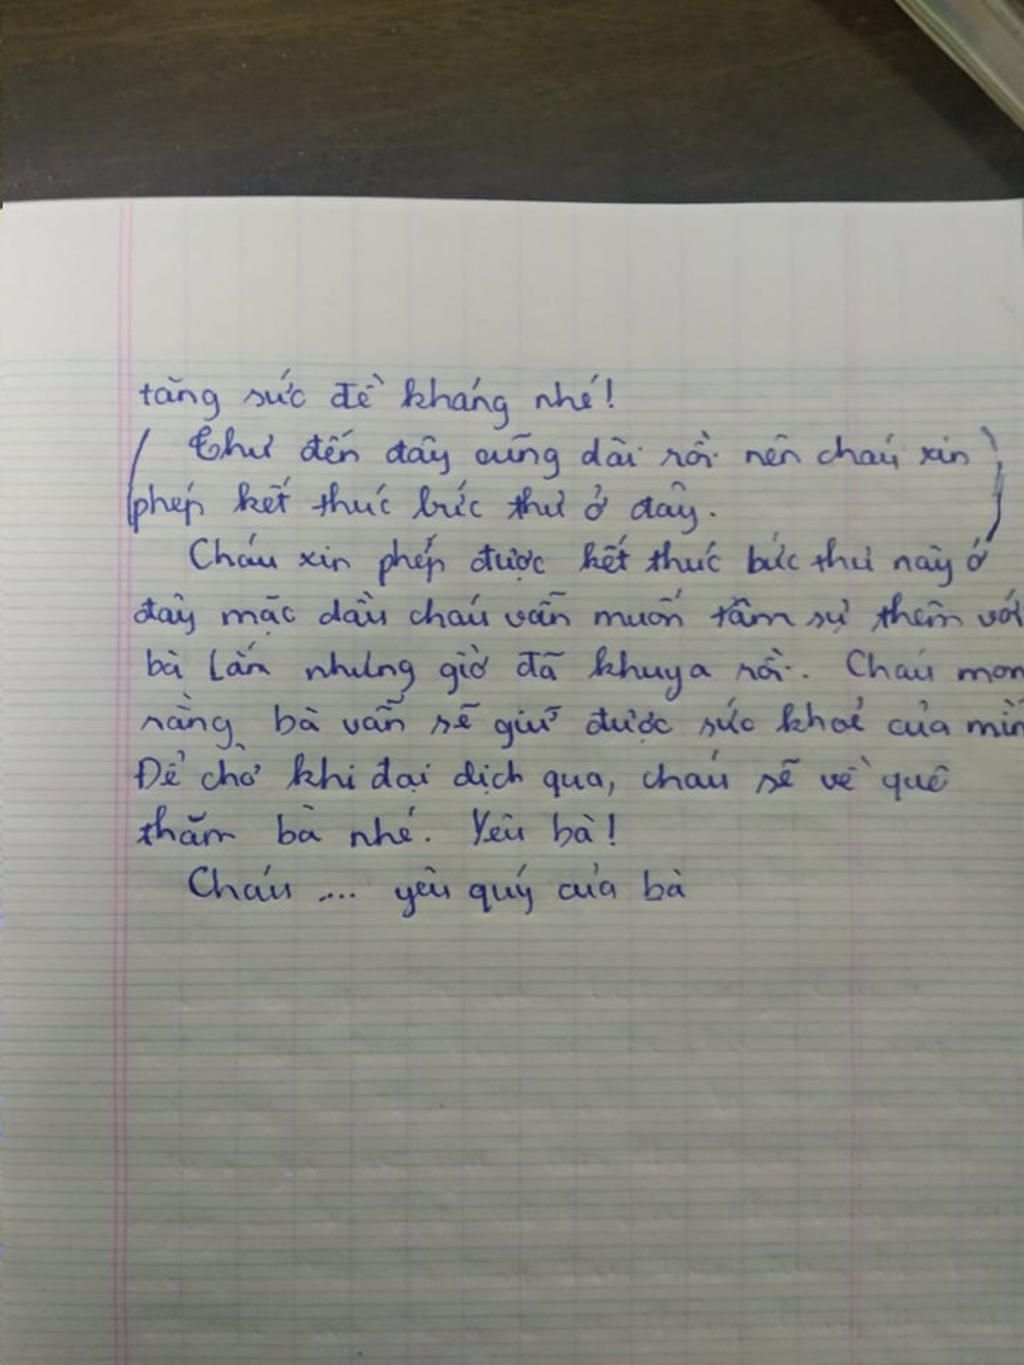 tăng sức đề kháng nhé!
( Thư đến đây cũng dài rồi nên cháu xin )
phép kết thúc bức thư ở đây.
Cháu xin phép được kết thúc bức thư này ở
đây mặc dầu cháu vẫn muốn tâm sự thêm với
bà lắm nhưng giờ đã khuya rồi. Cháu mon
rằng bà vẫn sẽ giữ được sức khoẻ của mìn
Để chờ khi đại dịch qua, cháu sẽ về quê
thăm bà nhé. Yêu bà!
Cháu .... yêu quý của bà